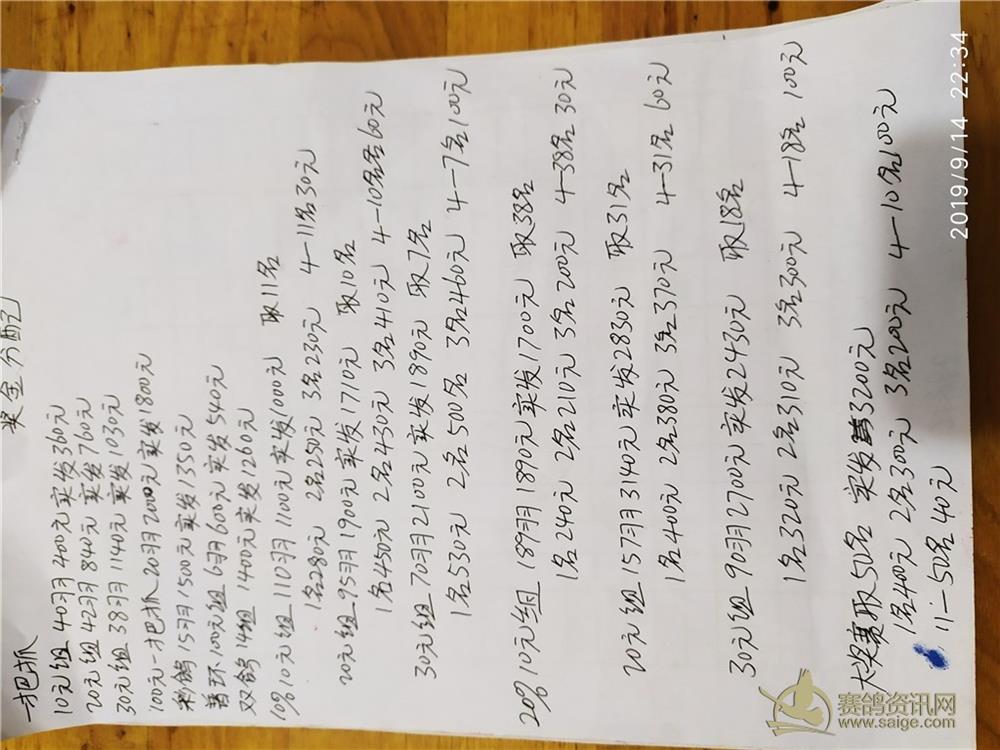 奖金分配
一把抓
10元组 40羽 400元 实发360元
20元组 42羽 840元 实发760元
30元组 38羽 1140元 实发1030元
100元一把抓 20羽 2000元 实发1800元
彩鸽15羽 1500元 实发1350元
普环100元组 6羽 600元 实发540元
双鸽 14组 1400元 实发1260元
10% 10元组 110羽 1100元 实发1000元 取11名
1名280元 2名250元 3名230元 4—11名30元
20元组 95羽 1900元 实发1710元 取10名
1名450元 2名430元 3名410元 4—10名名60元
30元组 70羽 2100元 实发1890元 取7名
1名530元 2名500名 3名460元 4—7名100元
20% 10元组 189羽 1890元 实发1700元 取38名
1名240元 2名210元 3名200元 4—38名30元
20元组 157羽 3140元 实发2830元 取31名
1名400元 2名380元 3名370元 4—31名60元
30元组 90羽 2700元 实发2430元 取18名
1名320元 2名310元 3名300元 4—18名100元
大奖赛取50名 实发3200元
1名400元 2名300元 3名200元 4—10名100元
11—50名40元
2019/9/14 22:34
赛鸽资讯网
www.saige.com